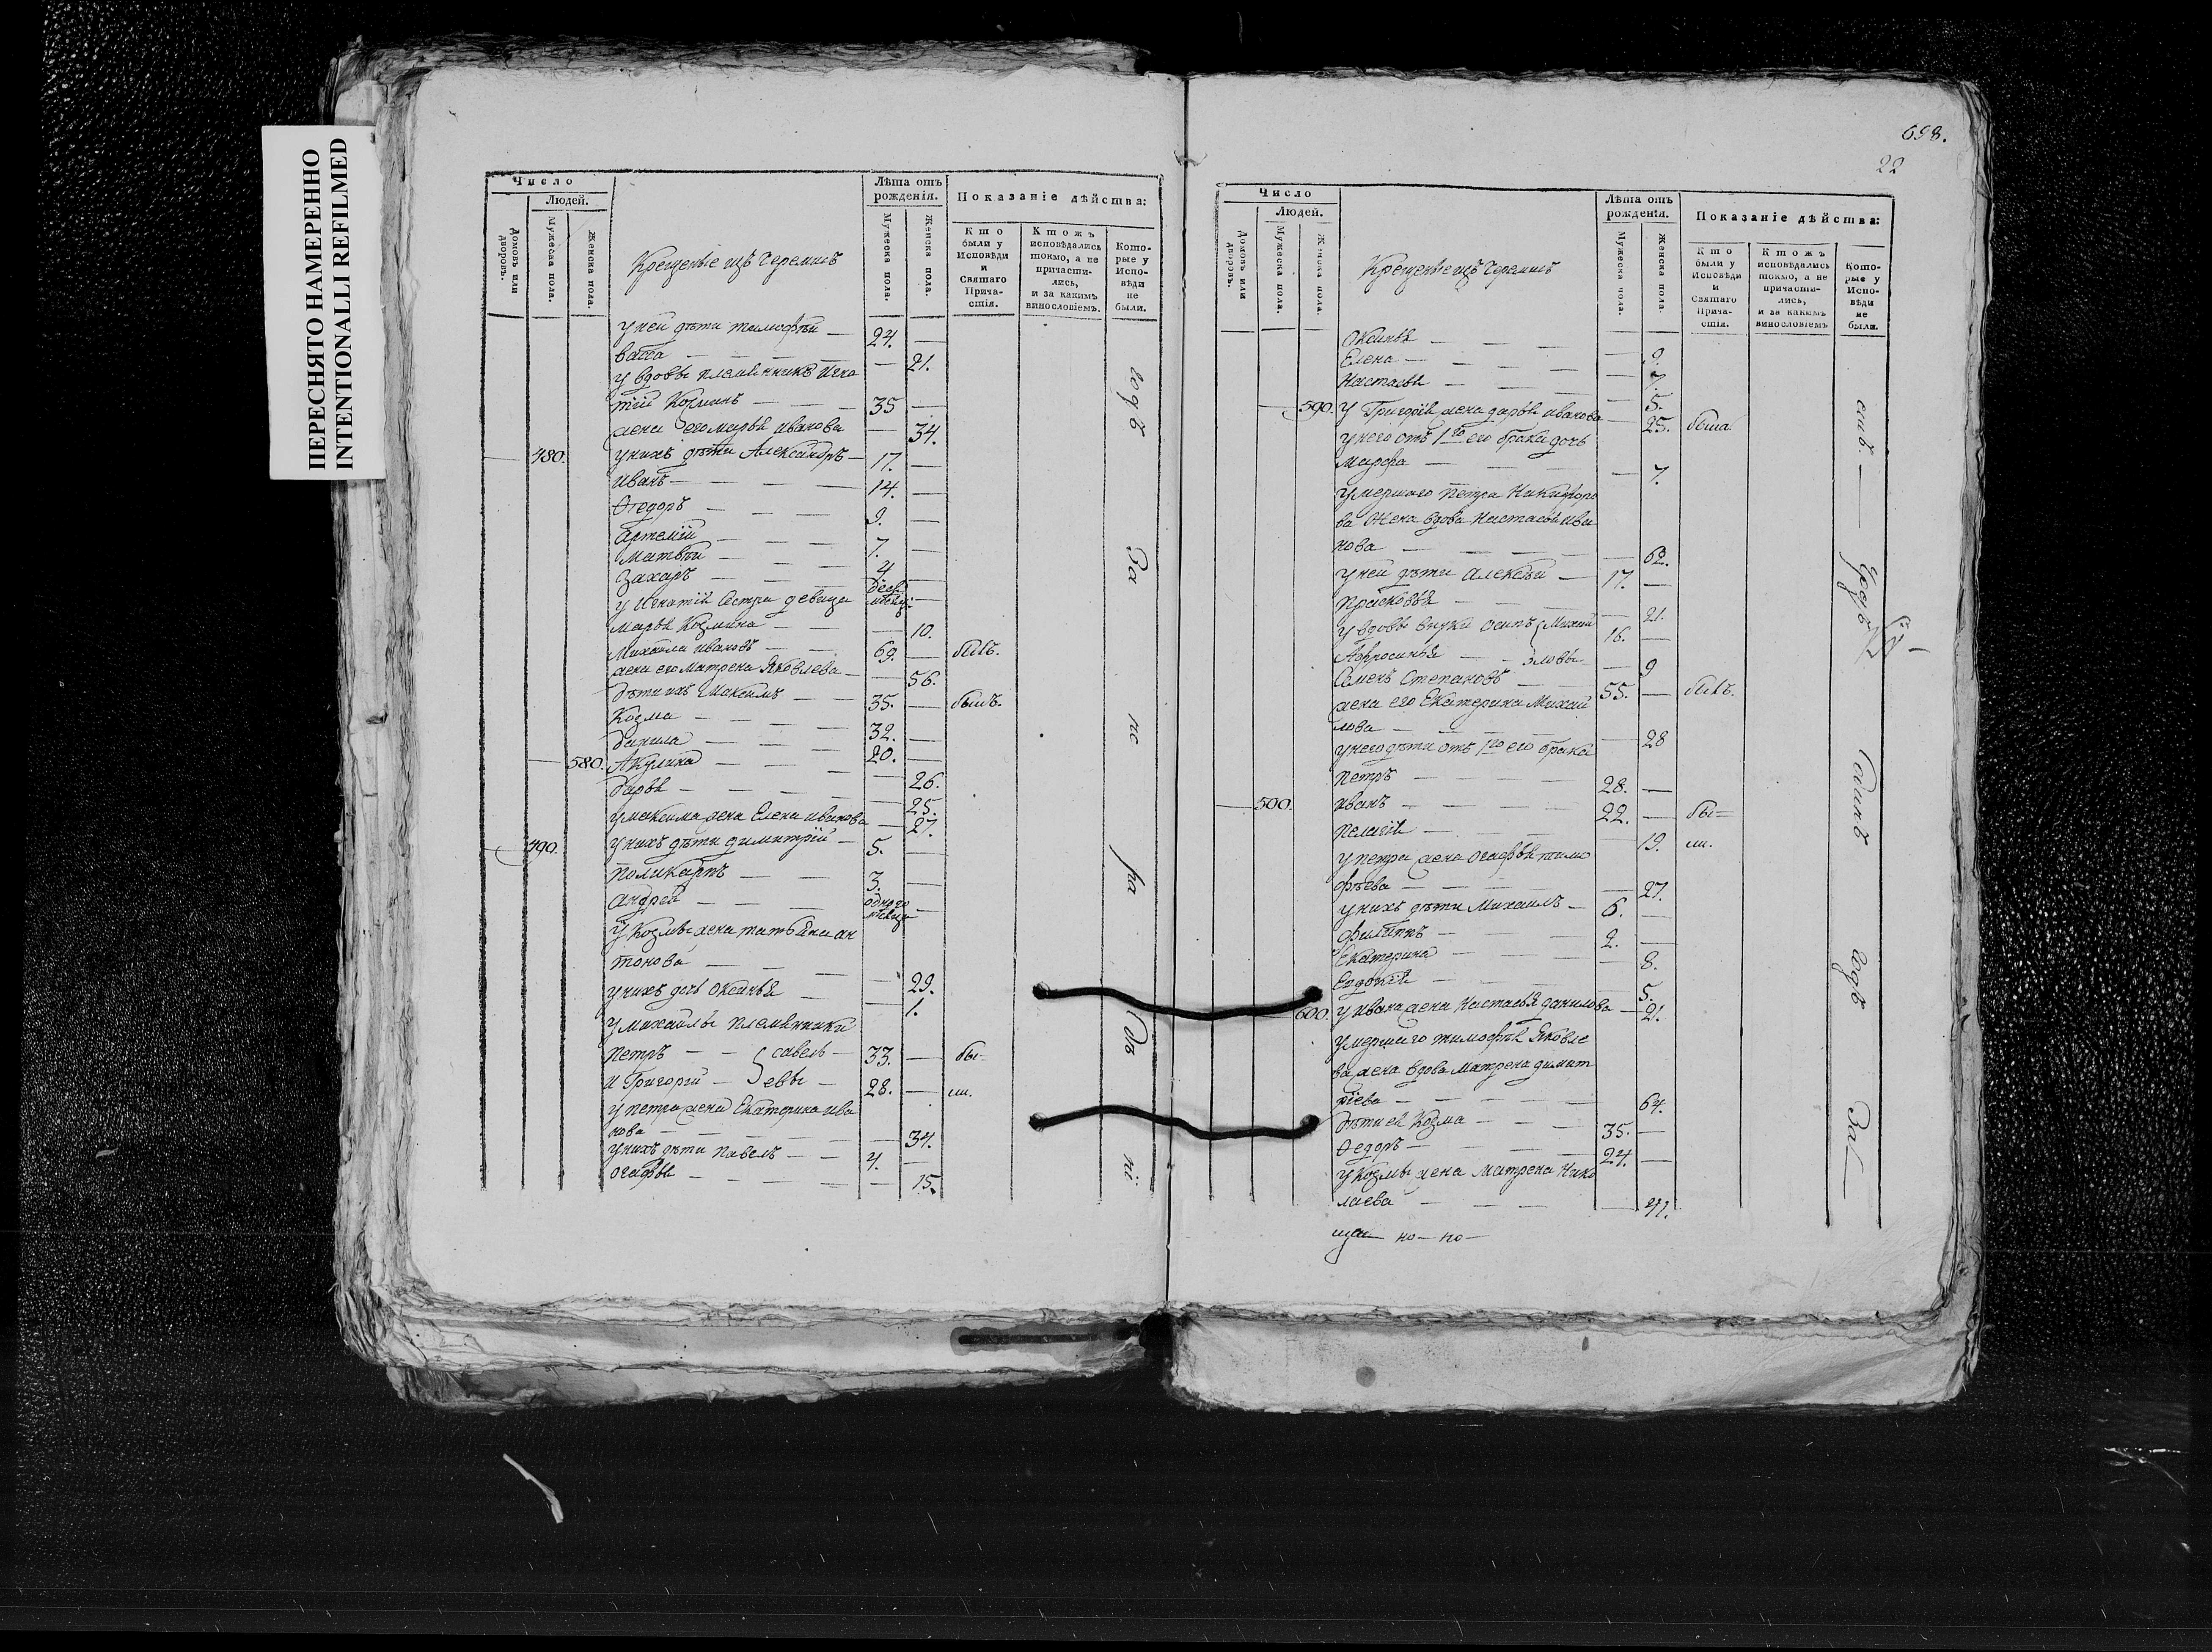 ПЕРЕСНЯТО НАМЕРЕННО
INTENTIONALLI REFILMED
Число
Людей.
Домовъ или дворовъ.
Мужеска пола.
Женска пола.
Крещеные изъ Черемисъ
Лѣта отъ рожденія.
Мужеска пола.
Женска пола.
Показаніе дѣйства:
Кто были у Исповѣди и Святаго Причастія.
Ктожъ исповѣдались токмо, а не причастились, и за какимъ винословіемъ.
Которые у Исповѣди не были.
у ней дѣти тимофѣй — 24. —
— — — — 21.
у вдовы племянникъ Игна
тій Козминъ — — 35 —
жена его марья иванова — 34.
— 480. у нихъ дѣти Александръ — 17. —
иванъ — — — 14. —
Ѳедоръ — — — 9. —
артемій — — — 7. —
матвѣй — — — 4 —
Захаръ — — —
у Игнатія сестра девица
марья Козмина — — — 10.
михайла ивановъ — — 69. — былъ.
жена его матрена Яковлева — — 56.
дѣти ихъ максимъ — — 35. — былъ.
Козма — — — 32. —
данила — — — 20. —
— 580. Акулина — — — — 26.
дарья — — — — 25.
у максима жена Елена иванова — 27.
— 490. у нихъ дѣти димитрій — 5. —
поликарпъ — — 3. —
андрей — — одного мѣсяца —
у Козмы жена татьяна ан
тонова — — — — 29.
у нихъ дочь Оксинья — — 1.
у михайлы племянники
петръ — — савель — 33. — бы-
и Григорій — евы — 28. — ли.
у петра жена Екатерина ива
нова — — — — 34.
у нихъ дѣти павелъ — — 4. —
огафья — — — — 15.
годѣ
За
пс
ра
да
пі
698.
22
Число
Людей.
Домовъ или дворовъ.
Мужеска пола.
Женска пола.
Крещеные изъ Черемисъ
Лѣта отъ рожденія.
Мужеска пола.
Женска пола.
Показаніе дѣйства:
Кто были у Исповѣди и Святаго Причастія.
Ктожъ исповѣдались токмо, а не причастились, и за какимъ винословіемъ
Которые у Исповѣди не были.
Оксинья — — — — 9.
Елена — — — — 7.
Настасья — — — — 5.
— 590. у Григорія жена дарья иванова — 25. была.
у него отъ 1го его брака дочь
марфа — — — — 7.
умершаго петра Никифоро
ва жена вдова Настасья ива
нова — — — — 62.
у ней дѣти алексѣй — 17. —
прасковья — — — — 21.
у вдовы внуки осипъ Михай 16. —
Афросинья — — ловы — 9
Семенъ Степановъ — — 55. — былъ.
жена его Екатерина Михай
лова — — — — 28
у него дѣти отъ 1го его брака
петръ — — — 28. —
— 500. иванъ — — — 22. — бы=
пелагія — — — — 19. ли.
у петра жена огафья тимо
фѣева — — — — 27.
у нихъ дѣти михаилъ — 6. —
филиппъ — — — 2. —
Екатерина — — — — 8.
Евдокія — — — — 5.
600. у ивана жена Настасья данилова — 21.
умершаго тимофѣя Яковле
ва жена вдова матрена димит
ріева — — — — 64.
дѣти ея Козма — — — 35. —
Ѳедоръ — — — 24. —
у Козмы жена матрена Нико
лаева — — — — 41.
годѣ
За
но — по —